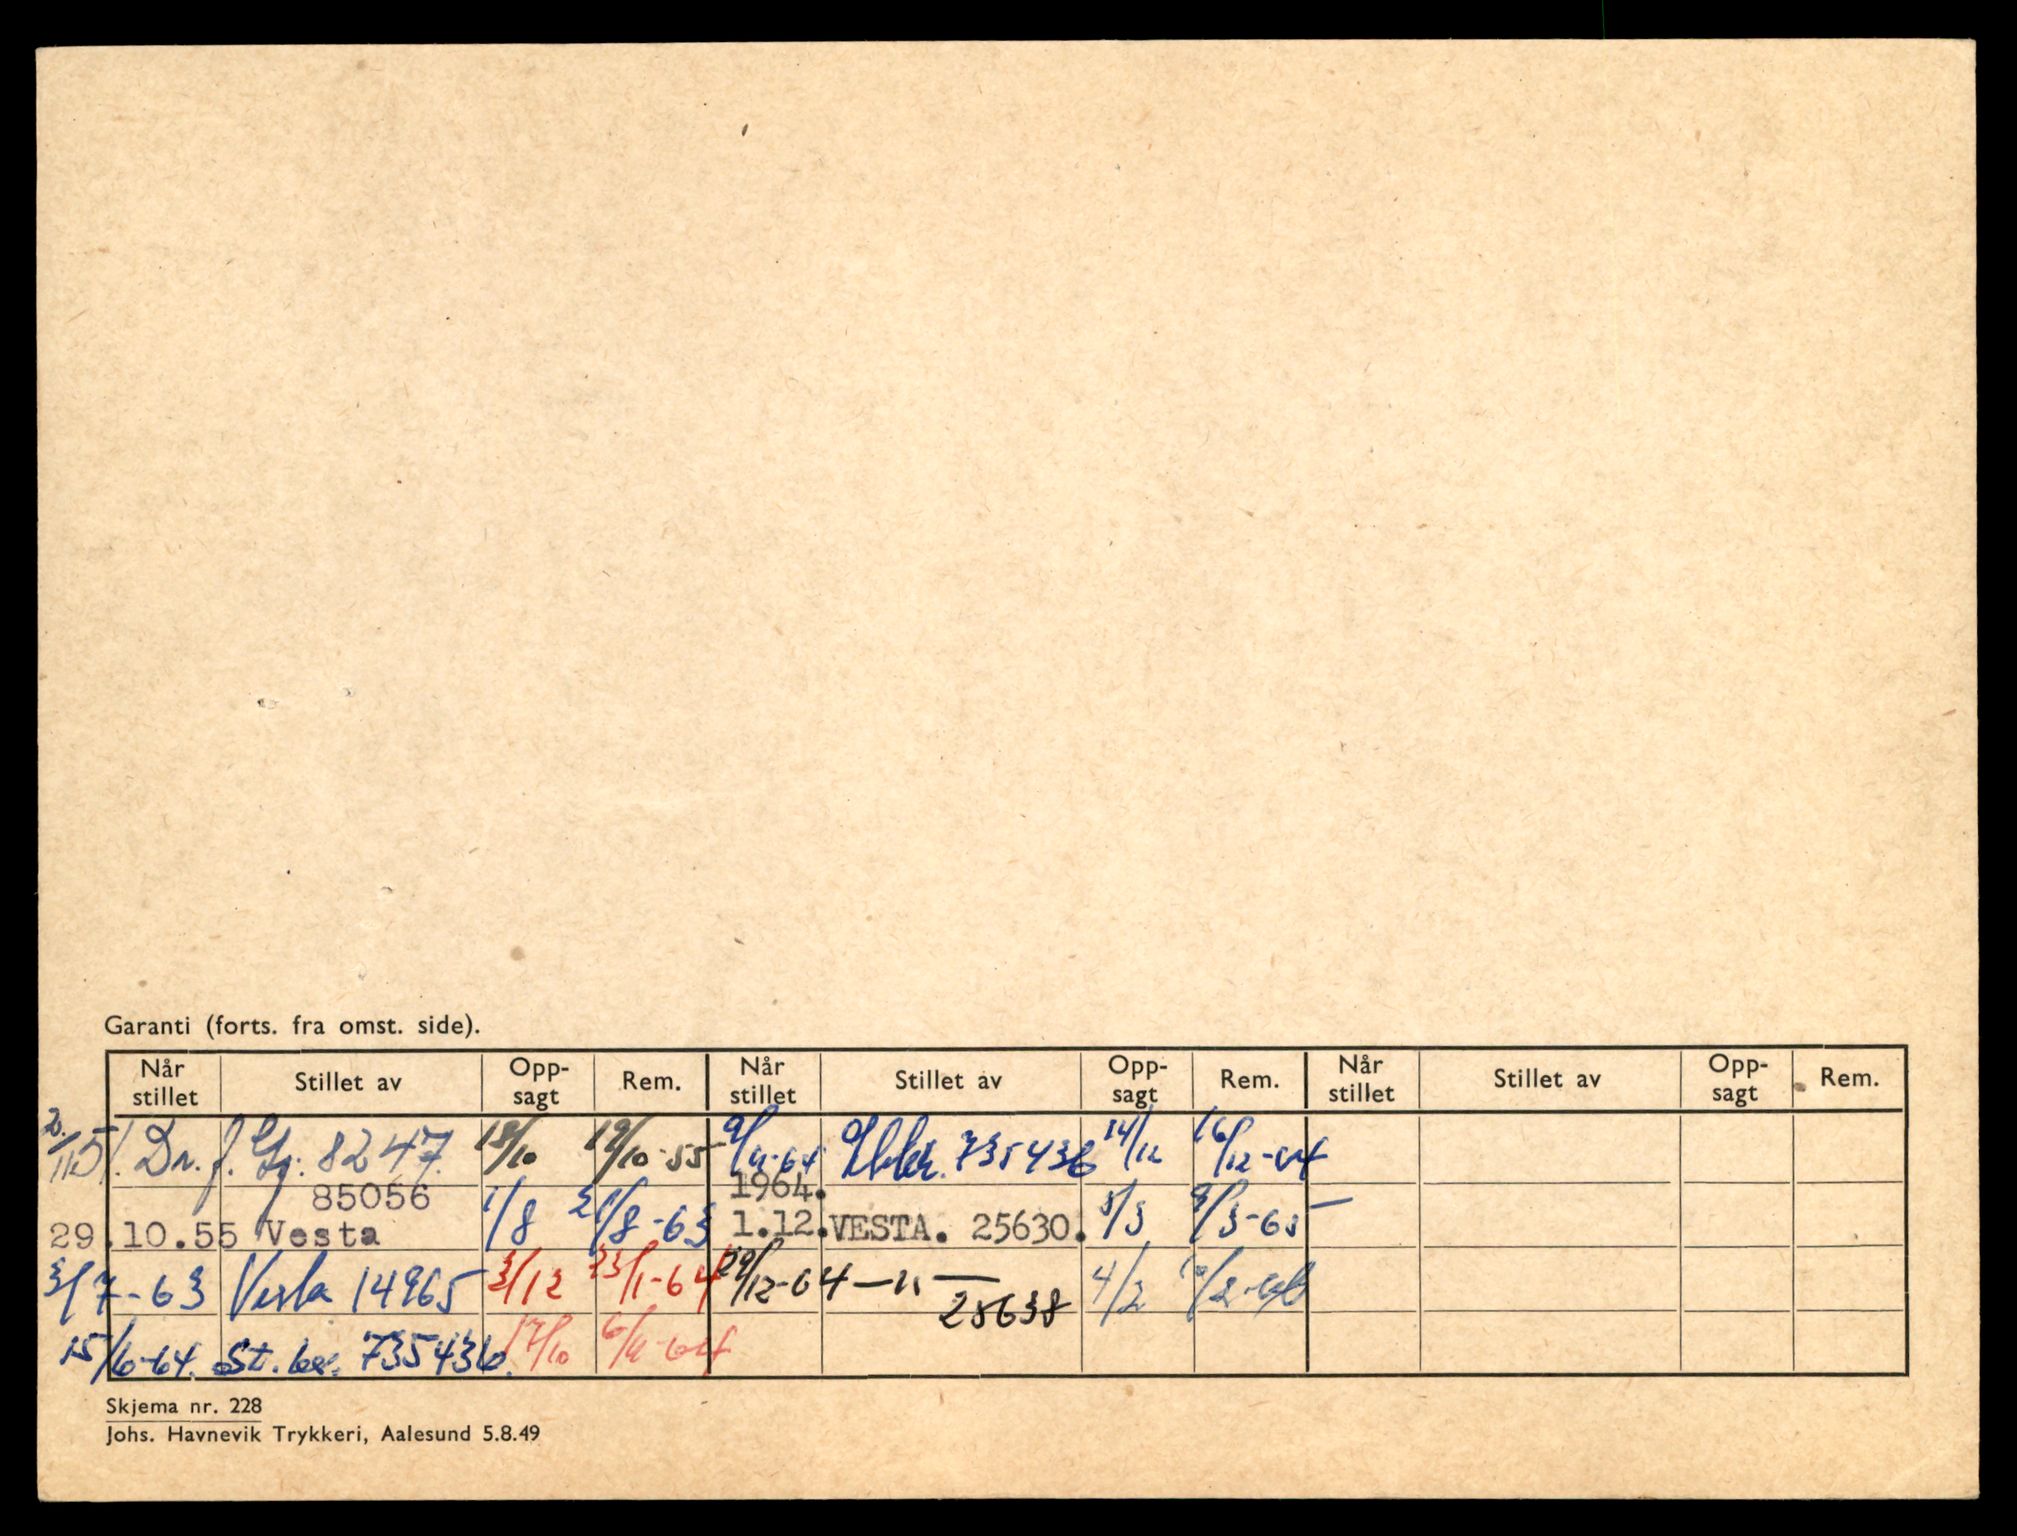 Garanti (forts. fra omst. side).
Når stillet Stillet av Opp-sagt Rem. Når stillet Stillet av Opp-sagt Rem. Når stillet Stillet av Opp-sagt Rem.
8247 18/10 19/10-55 735436 14/12 16/12-64
85056 1964.
29.10.55 Vesta 1/8 /8-63 1.12. VESTA. 25630. /3 /3-65
3/7-63 Vesta 14965 3/12 23/1-64 29/12-64 —"— 25638 4/2 /2-
15/6-64. St. 735436. 17/10 6/11-64
Skjema nr. 228
Johs. Havnevik Trykkeri, Aalesund 5.8.49